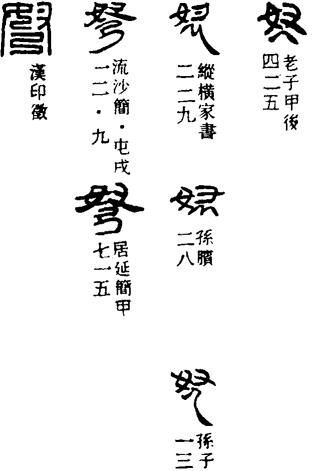 弩
老子甲後
四二五
弩
縱橫家書
二二九
弩
孫臏
二八
弩
孫子
一三
弩
流沙簡·屯戍
一二·九
弩
居延簡甲
七一五
弩
漢印徵